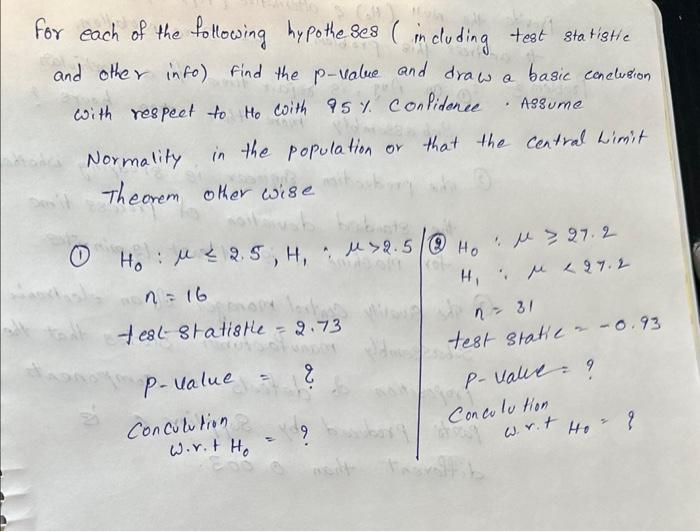 For each of the following hypotheses ( including test statistic
and other info) Find the p-value and draw a basic conclusion
with respect to Ho with 95 % Confidence . Assume
Normality in the population or that the central Limit
Theorem other wise
① H₀ : μ ≤ 2.5 , H₁ : μ > 2.5
n = 16
test statistic = 2.73
p-value = ?
Conculution
w.r.t H₀ = ?
② H₀ : μ ≥ 27.2
H₁ : μ < 27.2
n = 31
test static = -0.93
p-value = ?
Conculution
w.r.t H₀ = ?